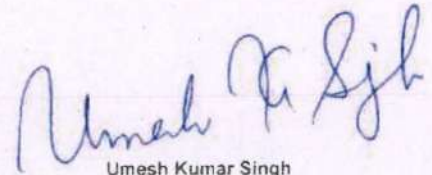 Umesh K Singh
Umesh Kumar Singh